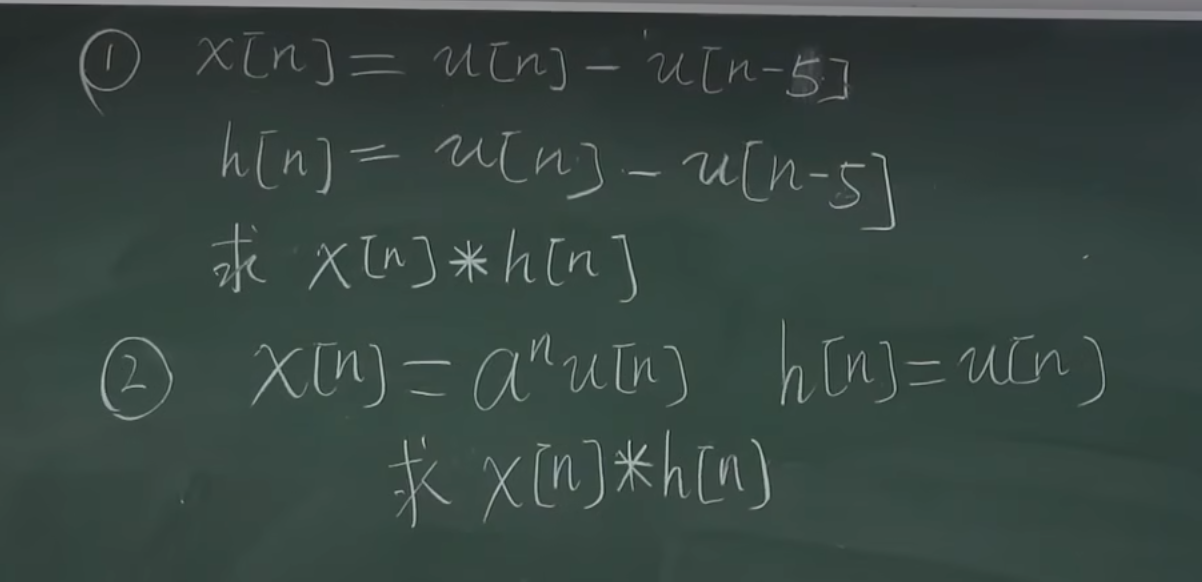 ① x[n] = u[n] - u[n-5]
h[n] = u[n] - u[n-5]
求 x[n]*h[n]
② x[n] = aⁿu[n] h[n] = u[n]
求 x[n]*h[n]